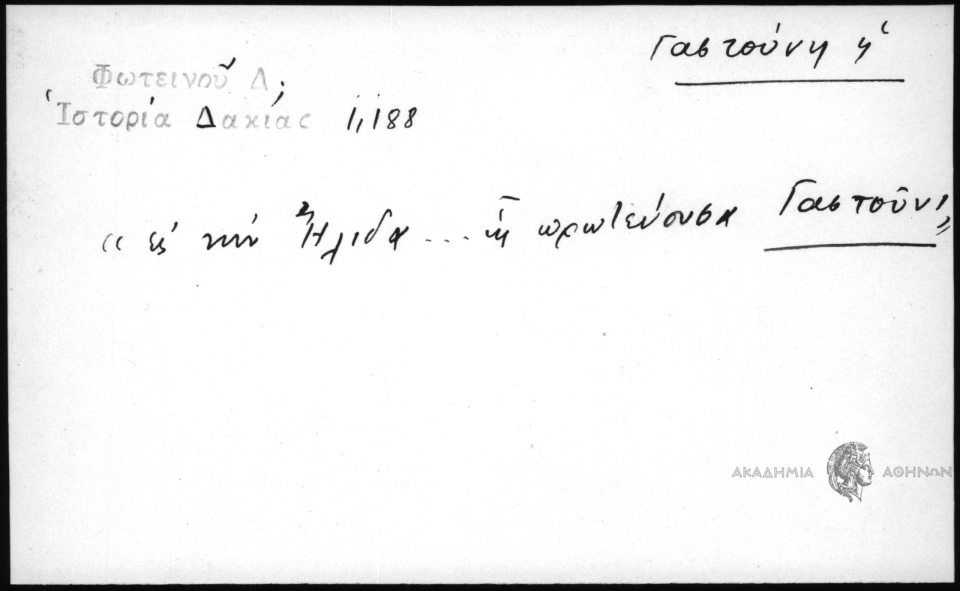 Γαστούνη ἡ
Φωτεινοῦ Δ;
Ἱστορία Δακίας 1,188
«εἰς τὴν Ἤλιδα... ἡ πρωτεύουσα Γαστοῦνι»
ΑΚΑΔΗΜΙΑ ΑΘΗΝΩΝ